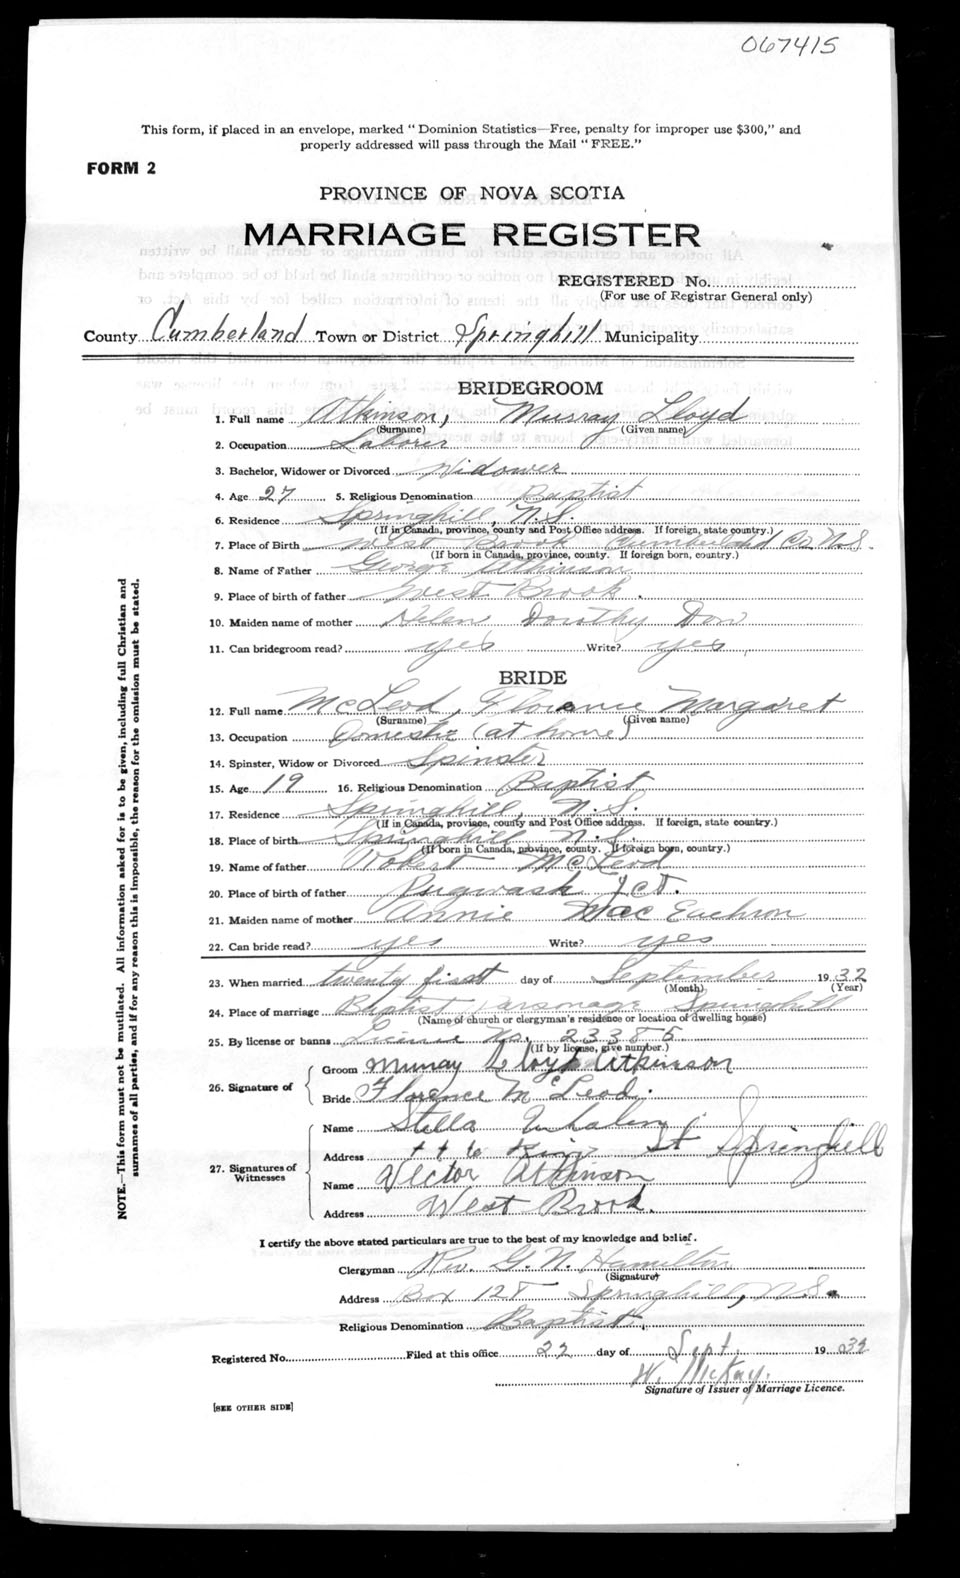 067415
This form, if placed in an envelope, marked "Dominion Statistics—Free, penalty for improper use $300," and
properly addressed will pass through the Mail "FREE."
FORM 2
PROVINCE OF NOVA SCOTIA
MARRIAGE REGISTER
REGISTERED No.
(For use of Registrar General only)
County Cumberland Town or District Springhill Municipality
BRIDEGROOM
1. Full name Atkinson, Murray Lloyd
(Surname) (Given name)
2. Occupation Laborer
3. Bachelor, Widower or Divorced Widower
4. Age 27 5. Religious Denomination Baptist
6. Residence Springhill, N.S.
(If in Canada, province, county and Post Office address. If foreign, state country.)
7. Place of Birth West Brook Cumberland Co N.S.
(If born in Canada, province, county. If foreign born, country.)
8. Name of Father George Atkinson
9. Place of birth of father West Brook.
10. Maiden name of mother Helen Dorothy Dow
11. Can bridegroom read? yes Write? yes
BRIDE
12. Full name McLeod, Florence Margaret
(Surname) (Given name)
13. Occupation Domestic (at home)
14. Spinster, Widow or Divorced Spinster
15. Age 19 16. Religious Denomination Baptist
17. Residence Springhill, N.S.
(If in Canada, province, county and Post Office address. If foreign, state country.)
18. Place of birth Springhill N.S.
(If born in Canada, province, county. If foreign born, country.)
19. Name of father Robert McLeod
20. Place of birth of father Pugwash Jct.
21. Maiden name of mother Annie MacEachron
22. Can bride read? yes Write? yes
23. When married twenty first day of September 1932
(Month) (Year)
24. Place of marriage Baptist Parsonage Springhill
(Name of church or clergyman's residence or location of dwelling house)
25. By license or banns License No. 23385
(If by license, give number.)
26. Signature of
Groom Murray Lloyd Atkinson
Bride Florence McLeod.
27. Signatures of Witnesses
Name Stella Whalen
Address King St Springhill
Name Victor Atkinson
Address West Brook.
I certify the above stated particulars are true to the best of my knowledge and belief.
Clergyman Rev. G. N. Hamilton
(Signature)
Address Box 128 Springhill, N.S.
Religious Denomination Baptist.
Registered No. Filed at this office 22 day of Sept. 1932
W. McKay.
Signature of Issuer of Marriage Licence.
[SEE OTHER SIDE]
NOTE.—This form must not be mutilated. All information asked for is to be given, including full Christian and
surnames of all parties, and if for any reason this is impossible, the reason for the omission must be stated.